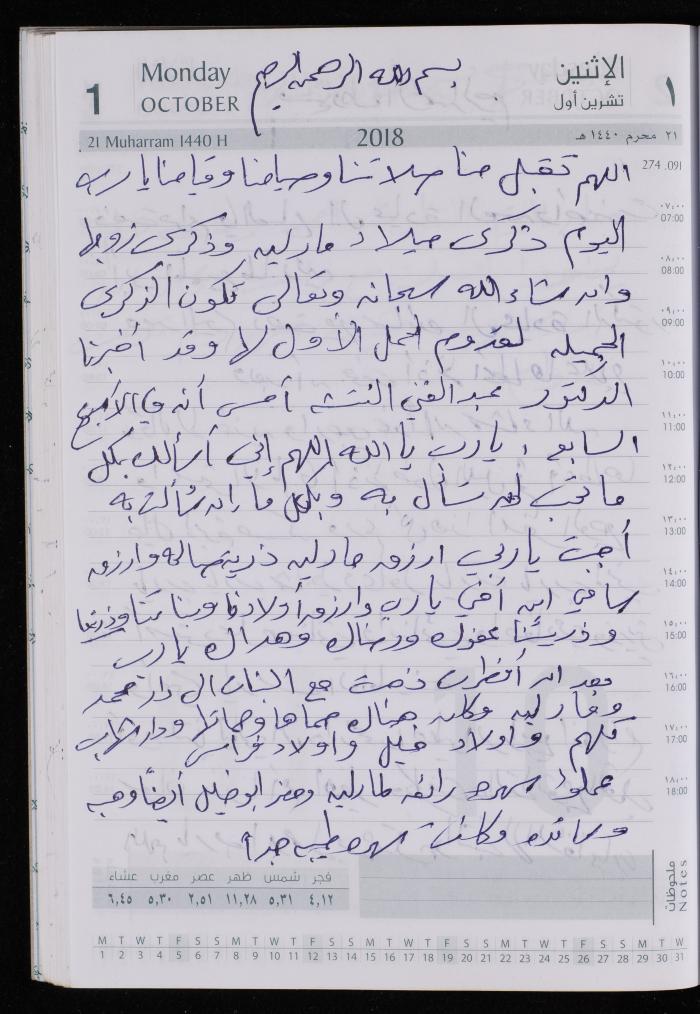 1
Monday
OCTOBER
بسم الله الرحمن الرحيم
الإثنين
تشرين أول
١
21 Muharram 1440 H
2018
٢١ محرم ١٤٤٠ هـ
274 .091
اللهم تقبل منا صلاتنا وصيامنا وقيامنا يارب
اليوم ذكرى ميلاد مارليه وذكرى زواجها
وان شاء الله سبحانه وتعالى تكون الذكرى
الجميله لقدوم الحمل الأول لها وقد أخبرنا
الدكتور عبد الغني النتشه أمس أنه في الأسبوع
السابع ، يارب يا الله اللهم إني أسألك بكل
ما تحب ان تسأل به وبكل ما ان سألت به
أجبت يا ربي ارزق مارليه ذرية صالحه وارزق
سامي ابن أخي يارب وارزق أولادنا وبناتنا وذريتنا
وذريتنا عفوك ورضاك وهداك يارب
بعد ان أفطرت ذهبت مع البنات الى دار محمد
ومارليه وكان هناك حماها وحماتها ودار شهاب
كلهم وأولاد خليل واولاد فراس
عملوا سهره رائعه لمارليه وحضر ابو خليل أيضاً وهبه
وكانت سهره طيبه جداً
٠٧:٠٠
07:00
٠٨:٠٠
08:00
٠٩:٠٠
09:00
١٠:٠٠
10:00
١١:٠٠
11:00
١٢:٠٠
12:00
١٣:٠٠
13:00
١٤:٠٠
14:00
١٥:٠٠
15:00
١٦:٠٠
16:00
١٧:٠٠
17:00
١٨:٠٠
18:00
ملحوظات
Notes
فجر شمس ظهر عصر مغرب عشاء
٤,١٢ ٥,٣١ ١١,٢٨ ٢,٥١ ٥,٣٠ ٦,٤٥
M T W T F S S M T W T F S S M T W T F S S M T W T F S S M T W
1 2 3 4 5 6 7 8 9 10 11 12 13 14 15 16 17 18 19 20 21 22 23 24 25 26 27 28 29 30 31